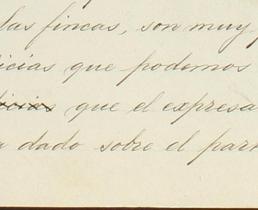 las fincas, son muy
icias que podemos
que el expresa
dado sobre el part